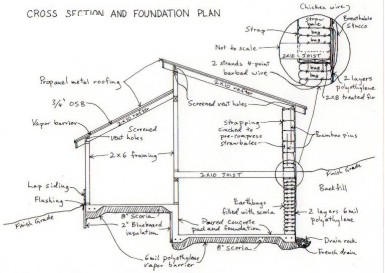 CROSS SECTION AND FOUNDATION PLAN
Chicken wire
Strap
straw
bale
Breathable
Stucco
bag
bag
Not to scale
2X10 JOIST
bag
bag
2 strands 4-point
barbed wire
2 layers
polyethylene
2x8 treated fir
Propanel metal roofing
2x10 rafter
2x10 rafter
3/6" OSB
Vapor barrier
Screened
vent holes
Screened vent holes
Strapping
cinched to
pre-compress
strawbales
Bamboo pins
2x6 framing
2X10 JOIST
Finish Grade
Backfill
Lap siding
Flashing
Finish Grade
Earthbags
filled with scoria
2 layers 6 mil
polyethylene
8" Scoria
2" Blueboard
insulation
Poured concrete
pad and foundation
8" Scoria
6 mil polyethylene
vapor barrier
Drain rock
French drain